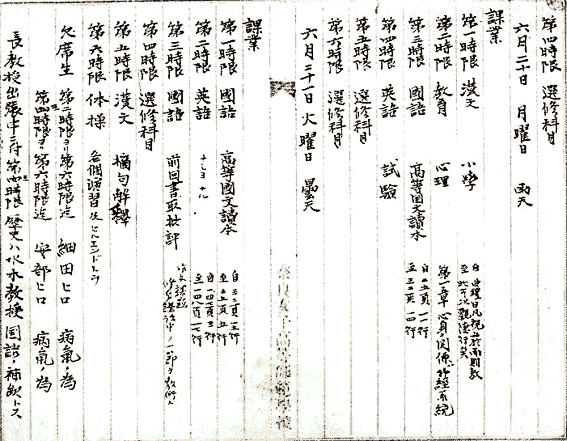 第四時限 選修科目
六月二十日 月曜日 雨天
課業
第一時限 漢文 小學
第二時限 教育 心理 第二章 心身ノ関係 神経系統
第三時限 國語 高等國文讀本
第四時限 英語 試驗
第五時限 選修科目
第六時限 選修科目
六月二十一日 火曜日 曇天
課業
第一時限 國語 高等國文讀本
第二時限 英語
第三時限 國語 前回書取批評
第四時限 選修科目
第五時限 漢文 摘句解釋
第六時限 体操 各個演習及
欠席生 第二時限ヨリ第六時限迄 細田ヒロ 病氣ノ為
第四時限ヨリ第六時限迄 安部ヒロ 病氣ノ為
長教授出張中ニ付第四時限歴史ハ水木教授國語ノ補欠トス
奈良女子高等師範學校